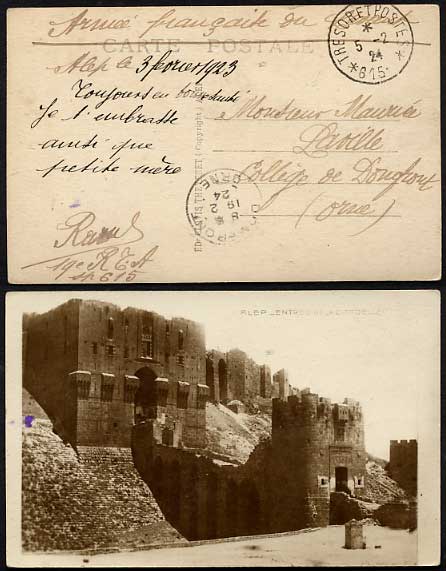 Armée française du
CARTE POSTALE
TRÉSOR ET POSTES
* 5 -2 24
*615*
Alep le 3 février 1923
Toujours en bonne santé
Je t'embrasse
ainsi que
petite mère
Raoul
19e R T A
sp 615
Monsieur Maurice
Laville
Collège de Domfront
(Orne)
DOMFRONT ORNE
8
19 2
24
ALEP _ENTRÉE DE LA CITADELLE